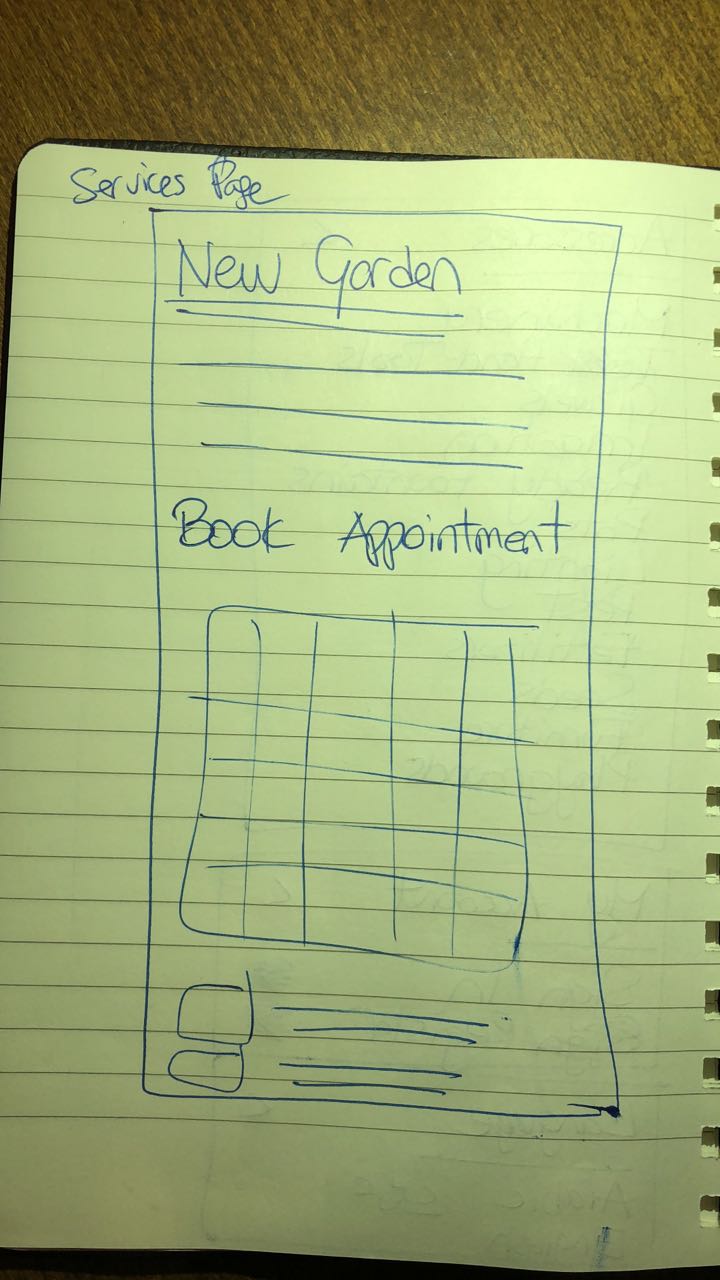 Services Page
New Garden
Book Appointment